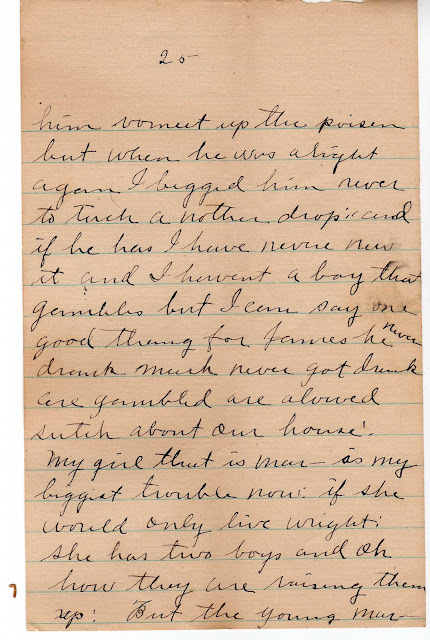 25
him vomeet up the poisen
but when he was aright
again I begged him never
to tuch a nother drop: and
if he has I have nevre new
it and I havent a boy that
gambles but I can say one
good thang for James he never
drank much never got drunk
are gambled are alowed
sutch about our house.
My girl that is mar— is my
biggist trouble now: if she
would only live wright:
she has two boys and oh
how they are raising them
up: But the young mar—